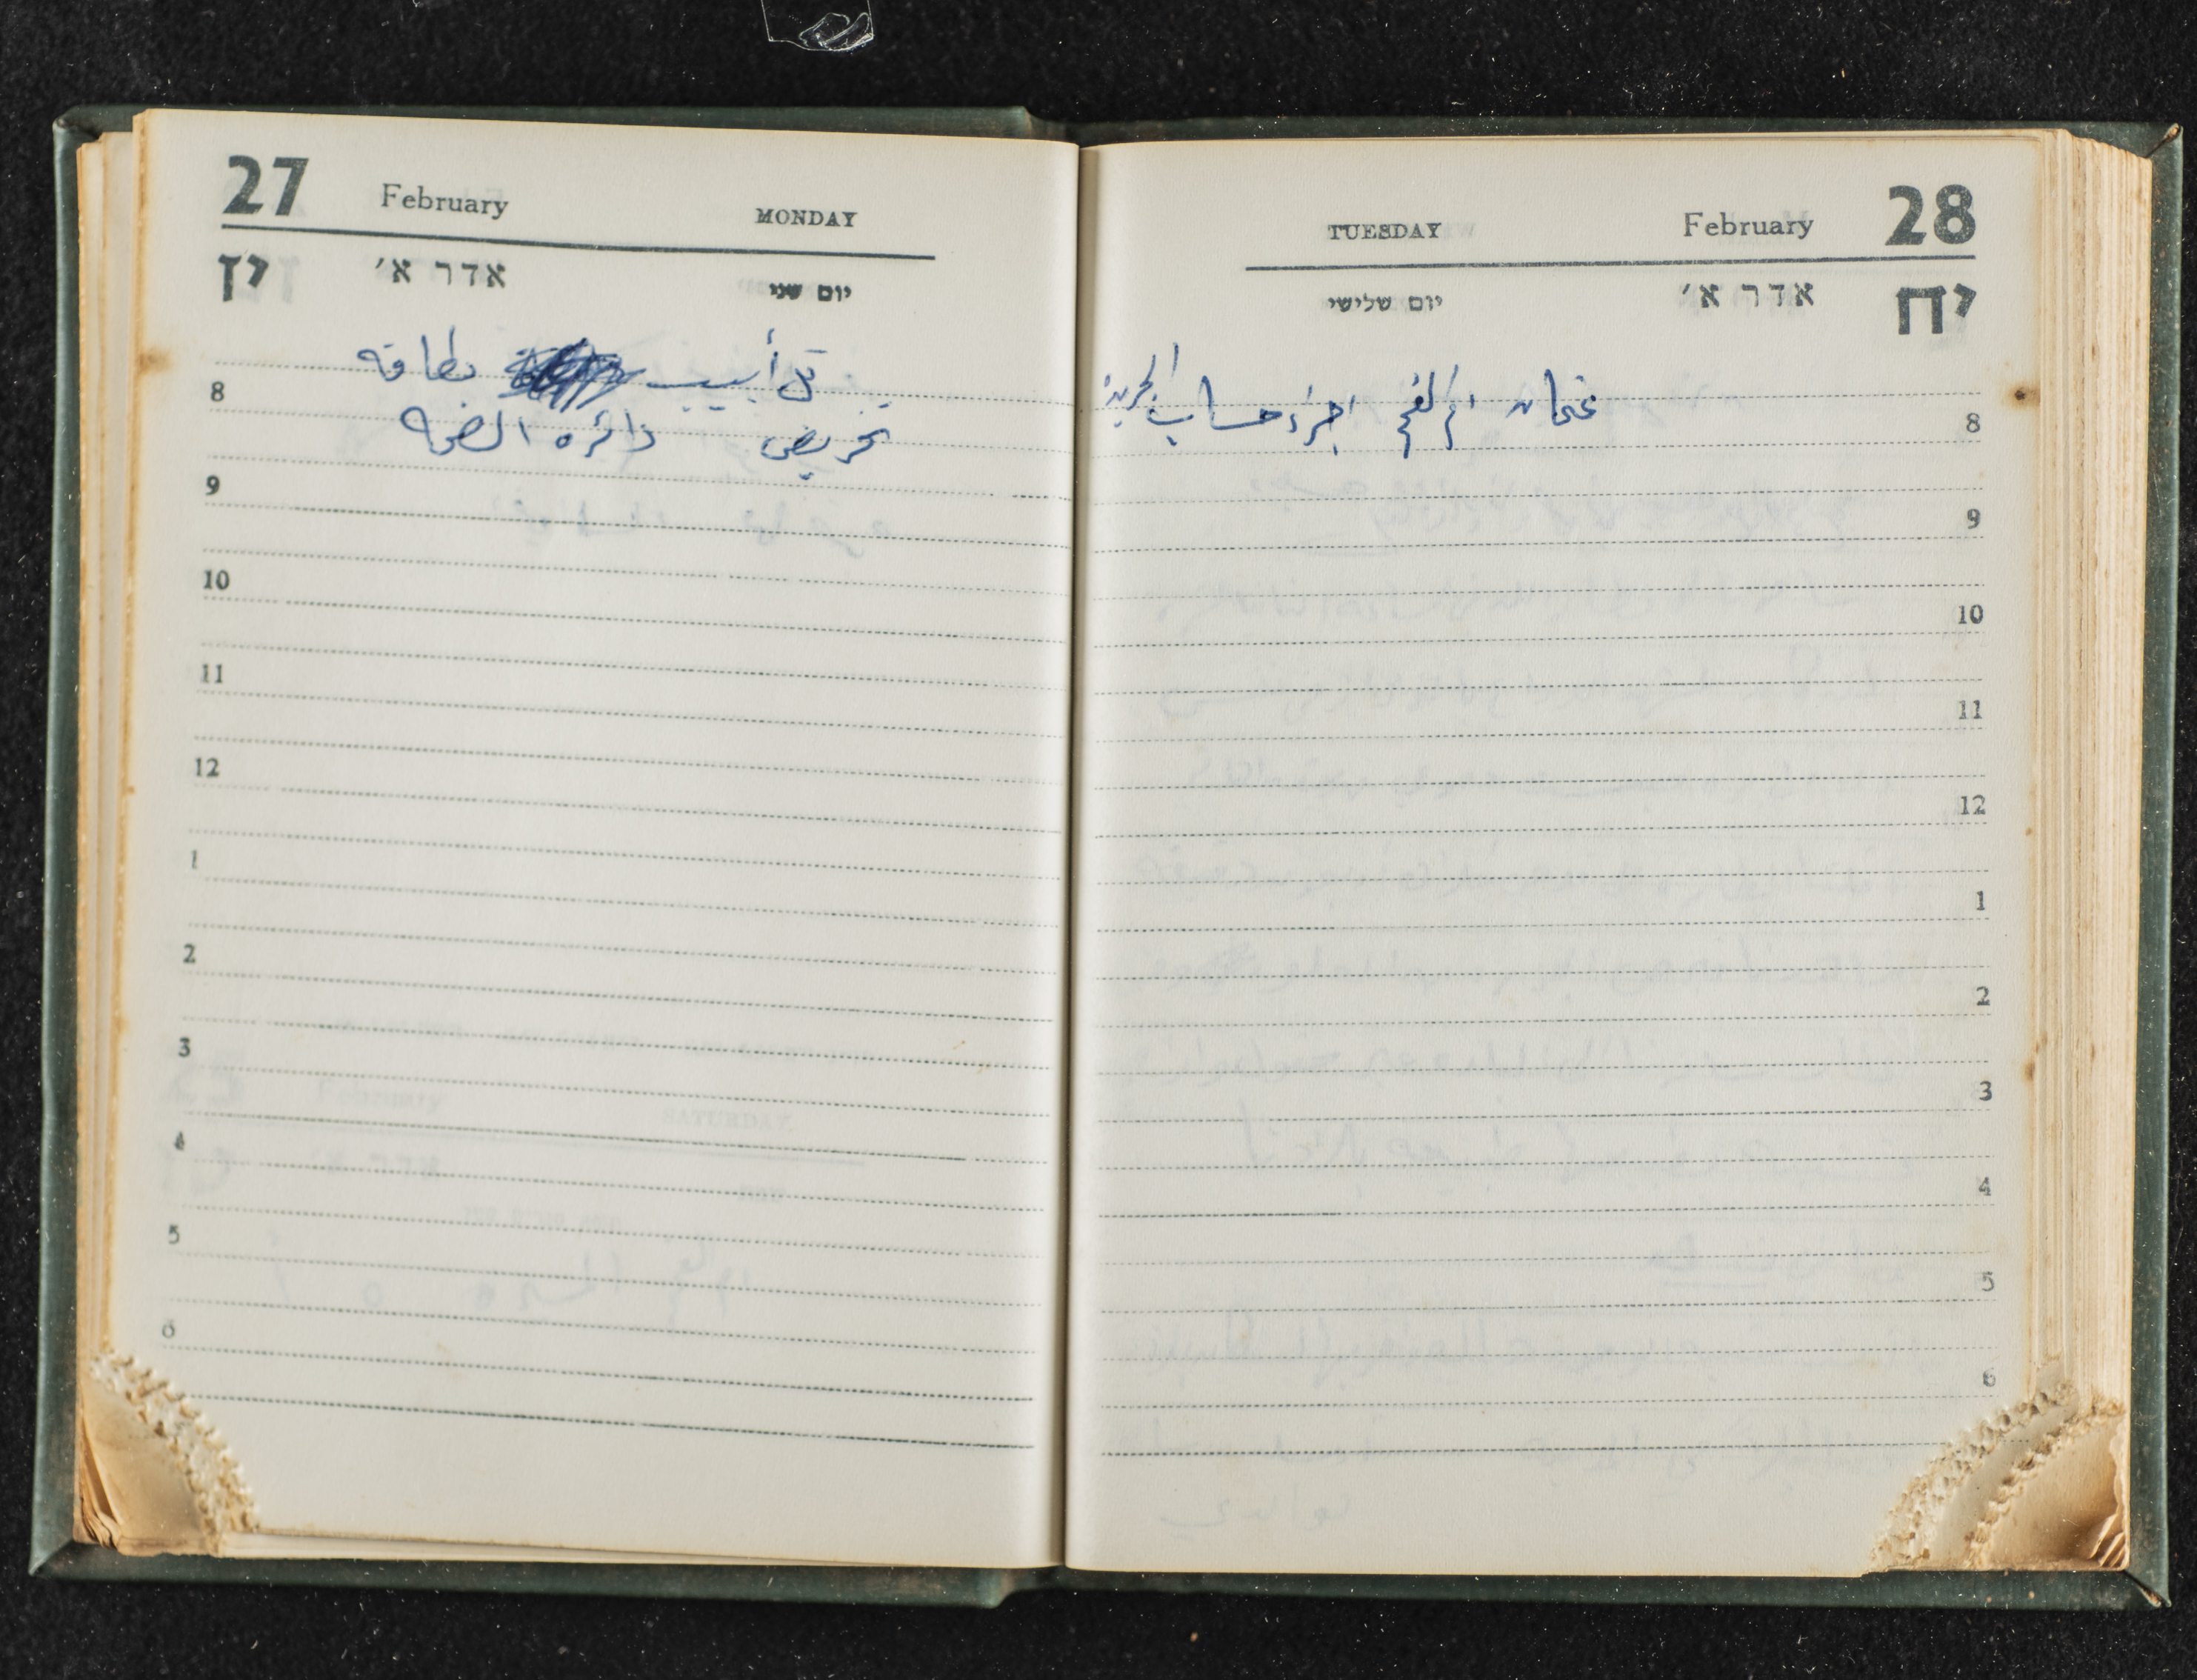 27 February MONDAY
יז אדר א׳ יום שני
تل أبيب بطاقه
تمريض دائره الصحه
8
9
10
11
12
1
2
3
4
5
6
TUESDAY February 28
יום שלישי אדר א׳ יח
ام الفحم اجراء حساب الجريدة
8
9
10
11
12
1
2
3
4
5
6